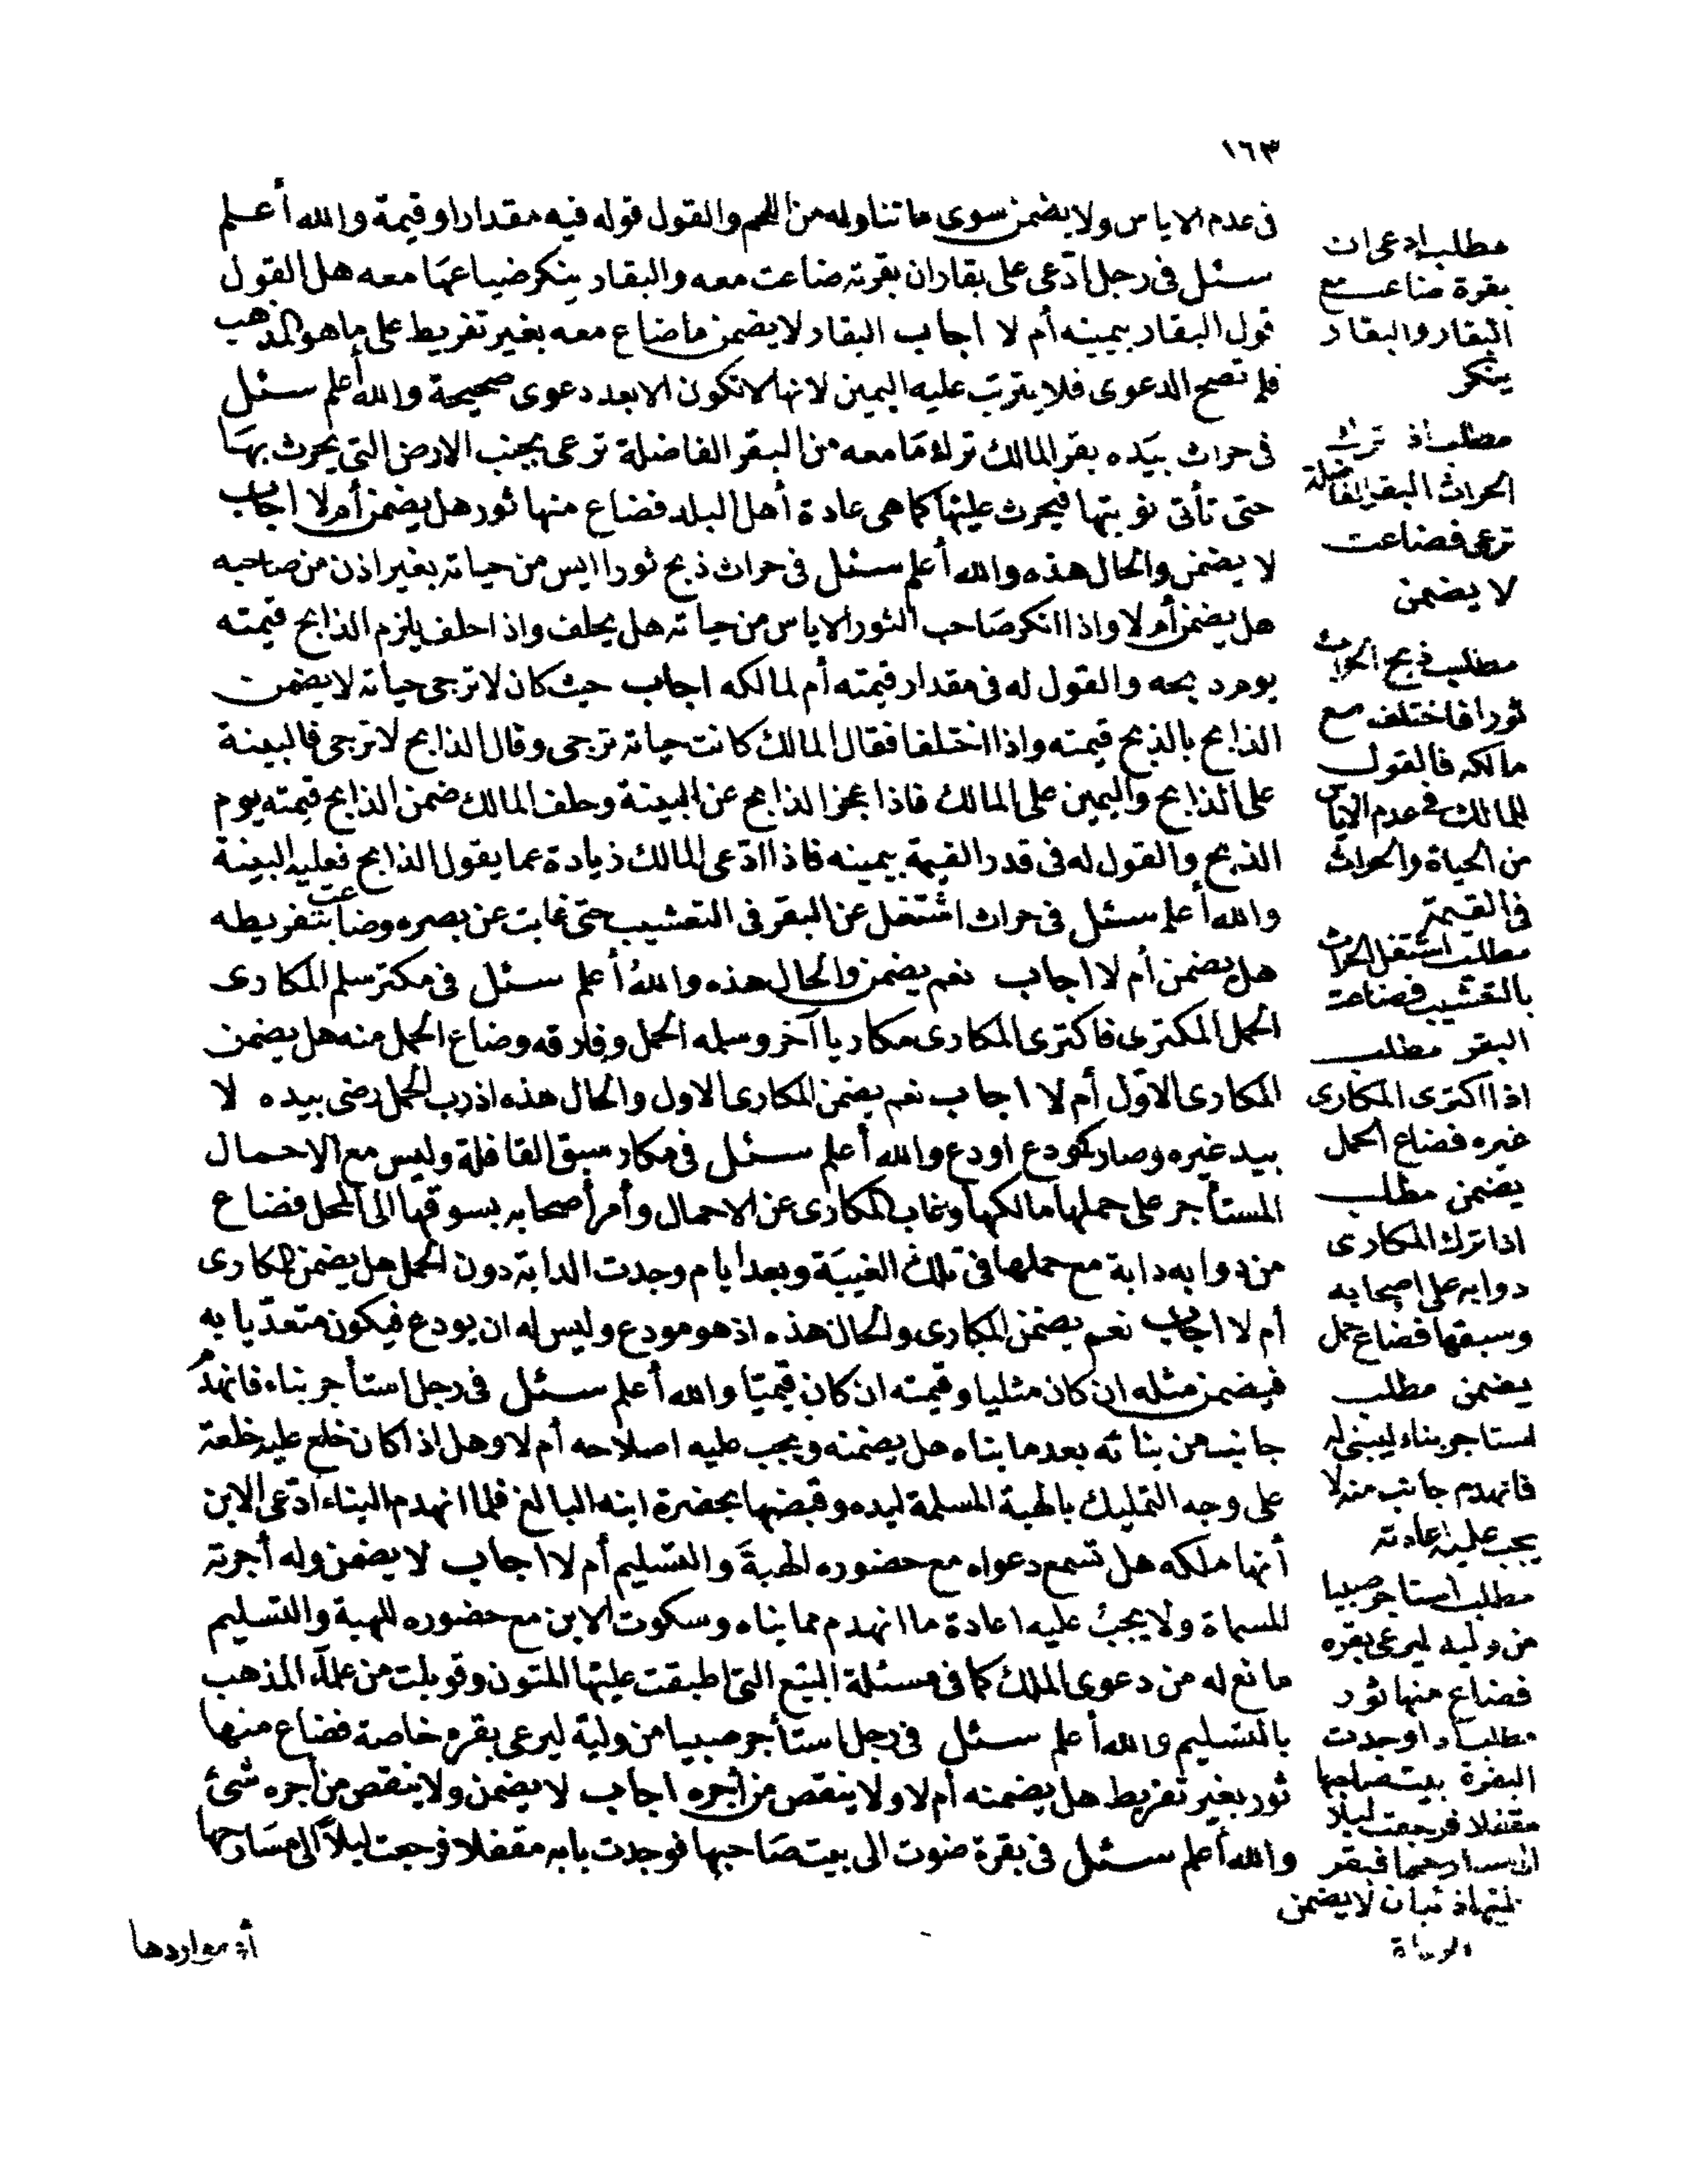 ١٦٣
فى عدم الاياس ولا يضمن سوى ما تناوله من اللحم والقول قوله فيه مقدارا وقيمة والله أعلم
سئل فى رجل ادّعى على بقار ان بقرته ضاعت معه والبقار ينكر ضياعها معه هل القول
قول البقار بيمينه أم لا اجاب البقار لا يضمن ما ضاع معه بغير تفريط على ما هو المذهب
فلم تصح الدعوى فلا يترتب عليه اليمين لانها لا تكون الا بعد دعوى صحيحة والله أعلم سئل
فى حراث بيده بقر المالك ترك ما معه من البقر الفاضلة ترعى بجنب الارض التى يحرث بها
حتى تأتى نوبتها فيحرث عليها كما هى عادة أهل البلد فضاع منها ثور هل يضمن أم لا اجاب
لا يضمن والحال هذه والله أعلم سئل فى حراث ذبح ثورا ايس من حياته بغير اذن من صاحبه
هل يضمن أم لا واذا انكر صاحب الثور الاياس من حياته هل يحلف واذا حلف يلزم الذابح قيمته
يوم ذبحه والقول له فى مقدار قيمته أم لمالكه اجاب حيث كان لا ترجى حياته لا يضمن
الذابح بالذبح قيمته واذا اختلفا فقال المالك كانت حياته ترجى وقال الذابح لا ترجى فالبينة
على الذابح واليمين على المالك فاذا عجز الذابح عن البينة وحلف المالك ضمن الذابح قيمته يوم
الذبح والقول له فى قدر القيمة بيمينه فاذا ادّعى المالك زيادة عما يقول الذابح فعليه البينة
والله أعلم سئل فى حراث اشتغل عن البقر فى التعشيب حتى غابت عن بصره وضاعت بتفريطه
هل يضمن أم لا اجاب نعم يضمن والحال هذه والله أعلم سئل فى مكتر سلم المكارى
الحمل المكترى فاكترى المكارى مكاريا آخر وسلمه الحمل وفارقه وضاع الحمل منه هل يضمن
المكارى الاوّل أم لا اجاب نعم يضمن المكارى الاول والحال هذه اذ رب الحمل رضى بيده لا
بيد غيره وصار كمودع اودع والله أعلم سئل فى مكار سبق القافلة وليس مع الاحمال
المستأجر على حملها مالكها وغاب المكارى عن الاحمال وأمر أصحابه بسوقها الى المحل فضاع
من دوابه دابة مع حملها فى تلك الغيبة وبعد ايام وجدت الدابة دون الحمل هل يضمن المكارى
أم لا اجاب نعم يضمن المكارى والحال هذه اذ هو مودع وليس له ان يودع فيكون متعدّيا به
فيضمن مثله ان كان مثليا وقيمته ان كان قيميّا والله أعلم سئل فى رجل استأجر بناء فانهدم
جانب من بنائه بعد ما بناه هل يضمنه ويجب عليه اصلاحه أم لا وهل اذا كان خلع عليه خلعة
على وجه التمليك بالهبة المسلمة ليده وقبضها بحضرة ابنه البالغ فلما انهدم البناء ادّعى الابن
أنها ملكه هل تسمع دعواه مع حضوره الهبة والتسليم أم لا اجاب لا يضمن وله أجرته
المسماة ولا يجب عليه اعادة ما انهدم مما بناه وسكوت الابن مع حضوره للهبة والتسليم
مانع له من دعوى الملك كما فى مسئلة البيع التى اطبقت عليها المتون وقوبلت من علماء المذهب
بالتسليم والله أعلم سئل فى رجل استأجر صبيا من وليه ليرعى بقره خاصة فضاع منها
ثور بغير تفريط هل يضمنه أم لا ولا ينقص من أجره اجاب لا يضمن ولا ينقص من أجره شئ
والله أعلم سئل فى بقرة ضوت الى بيت صاحبها فوجدت بابه مقفلا فرجعت ليلا الى مسارحها
مطلب ادعى ان
بقرة ضاعت مع
البقار والبقار
ينكر
مطلب اذ ترك
الحراث البقر الفاضلة
ترعى فضاعت
لا يضمن
مطلب ذبح الحراث
ثورا فاختلف مع
مالكه فالقول
للمالك فى عدم الاياس
من الحياة والحراث
فى القيمة
مطلب اشتغل الحراث
بالتعشيب فضاعت
البقر مطلب
اذا اكترى المكارى
غيره فضاع الحمل
يضمن مطلب
اذا ترك المكارى
دوابه على اصحابه
وسبقها فضاع حمل
يضمن مطلب
استاجر بناء ليبنى له
فانهدم جانب منه لا
يجب عليه اعادته
مطلب استاجر صبيا
من وليه ليرعى بقره
فضاع منها ثور
مطلب اذا وجدت
البقرة بيت صاحبها
مقفلا فرجعت ليلا
الى مسارحها فبقر
بطنها ذئبان لا يضمن
أو مواردها